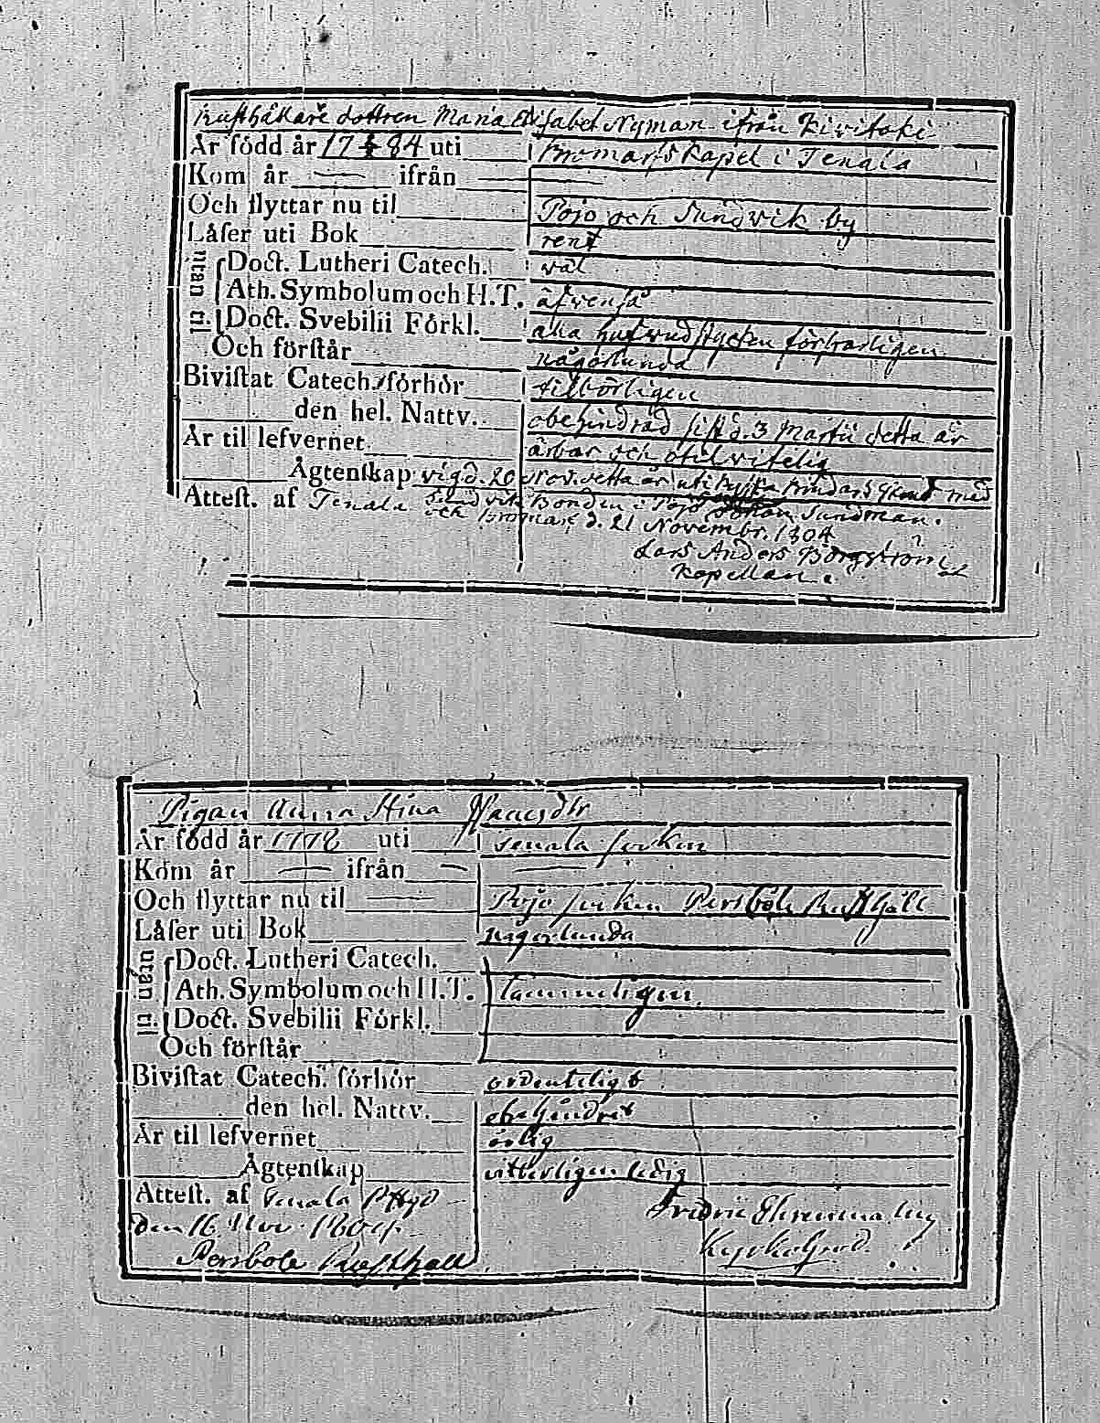 Rusthållare dottren Maria Elisabet Nyman ifrån Kivitoki
År född år 17 84 uti Bromarfs kapel i Tenala
Kom år — ifrån —
Och flyttar nu til Pojo och Sundvik by
Låser uti Bok rent
utan til
Doct. Lutheri Catech. väl
Ath. Symbolum och H.T. äfvenså
Doct. Svebilii Förkl. alla hufvudstycken försvarligen
Och förstår någorlunda
Bivistat Catech. förhör tilbörligen
den hel. Nattv. obehindrad sist d. 3 Martii detta år
År til lefvernet ärbar och otadvitelig
Ägtenskap vigd d. 20 Nov. detta år uti med
Sundvik Bonden i Pojo Johan Sundman.
Attest. af Tenala och Bromarf d. 21 Novembr. 1804
Lars Anders Borgström
Kapellan.
Pigan Anna Stina Hansdtr
År född år 1778 uti Tenala sockn
Kom år — ifrån — —
Och flyttar nu til — Pojo socken Persböle Rusthåll
Låser uti Bok någorlunda
utan til
Doct. Lutheri Catech.
Ath. Symbolum och H.T. tämmeligen
Doct. Svebilii Förkl.
Och förstår
Bivistat Catech. förhör ordenteligt
den hel. Nattv. obehindrat
År til lefvernet ärlig
Ägtenskap vitterligen ledig
Attest. af Tenala
den 16 Nov. 1804
Persböle Rusthåll
Kyrkoherd.